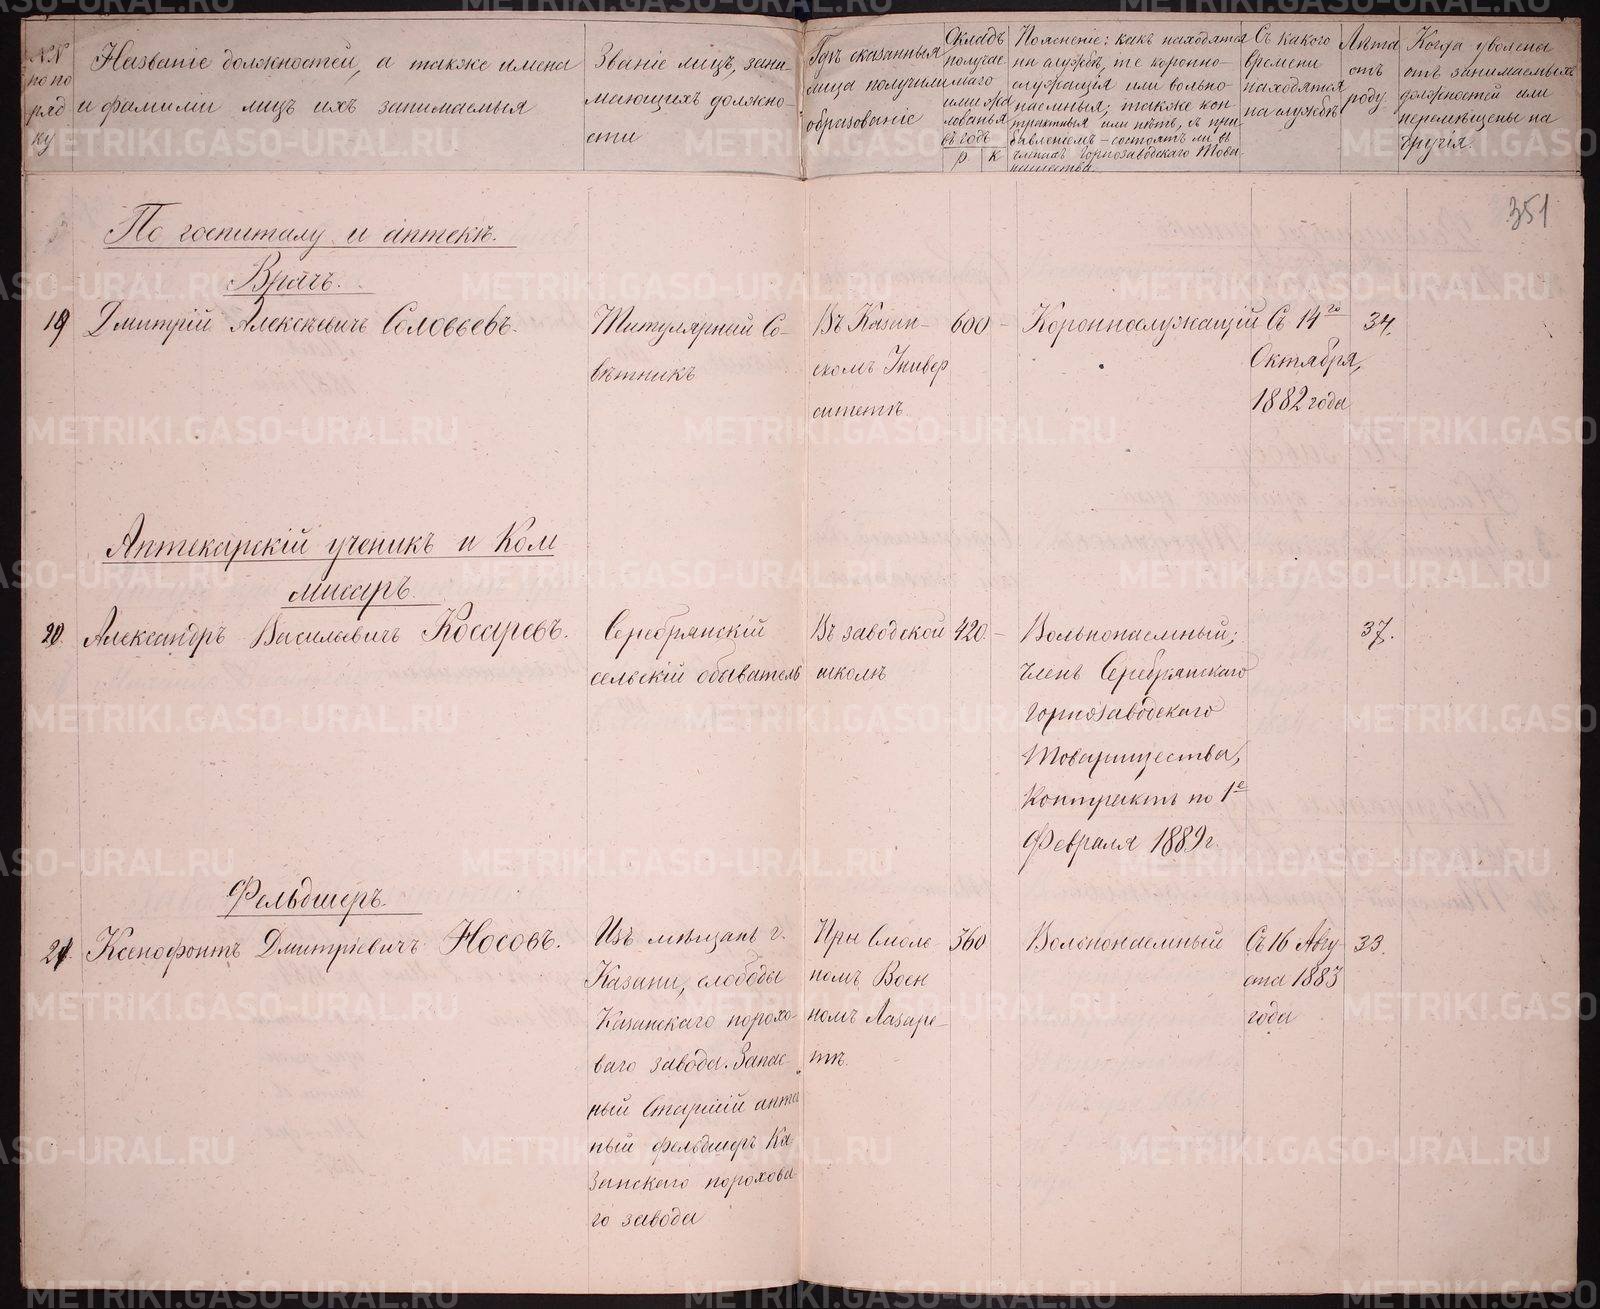 NN
по по
ряд
ку
Названіе должностей, а также имена
и фамиліи лицъ ихъ занимаемыя
Званіе лицъ, зани-
мающихъ должно-
сти
Гдѣ сказанныя
лица получили
образованіе
Окладъ
получае
маго
ими жа
лованья
въ годъ
Р К
Поясненіе: какъ находятся
на службѣ, те коронно-
служащія или вольно-
наемныя; также кон
трактныя или нѣтъ, съ при
бавленіемъ - состоятъ ли въ
членахъ Горнозаводскаго Това-
рищества.
Съ какого
времени
находятся
на службѣ
Лѣта
отъ
роду
Когда уволены
отъ занимаемыхъ
должностей или
перемѣщены на
другія.
351
По госпиталу и аптекѣ.
Врачъ.
19 Дмитрій Алексѣевичъ Соловьевъ.
Титулярный Со-
вѣтникъ
Въ Казан-
скомъ Универ
ситетѣ
600 -
Короннослужащій
Съ 14го
Октября,
1882 года
34.
Аптекарскій ученикъ и Ком
мисаръ
20. Александръ Васильевичъ Косаревъ.
Серебрянскій
сельскій обыватель
Въ заводской
школѣ
420. -
Вольнонаемный;
членъ Серебрянскаго
Горнозаводскаго
Товарищества,
Контрактъ по 1е
Февраля 1889 г.
37.
Фельдшеръ.
21. Ксенофонтъ Дмитріевичъ Носовъ.
Изъ мѣщанъ г.
Казани, слободы
Казанскаго порохо-
ваго завода. Запас-
ный Старшій аптеч
ный фельдшеръ Ка
занскаго порохова-
го завода
При Смоль
номъ Воен
номъ Лазаре-
тѣ.
360
Вольнонаемный
Съ 16 Авгу
ста 1883
года
33.
METRIKI.GASO-URAL.RU